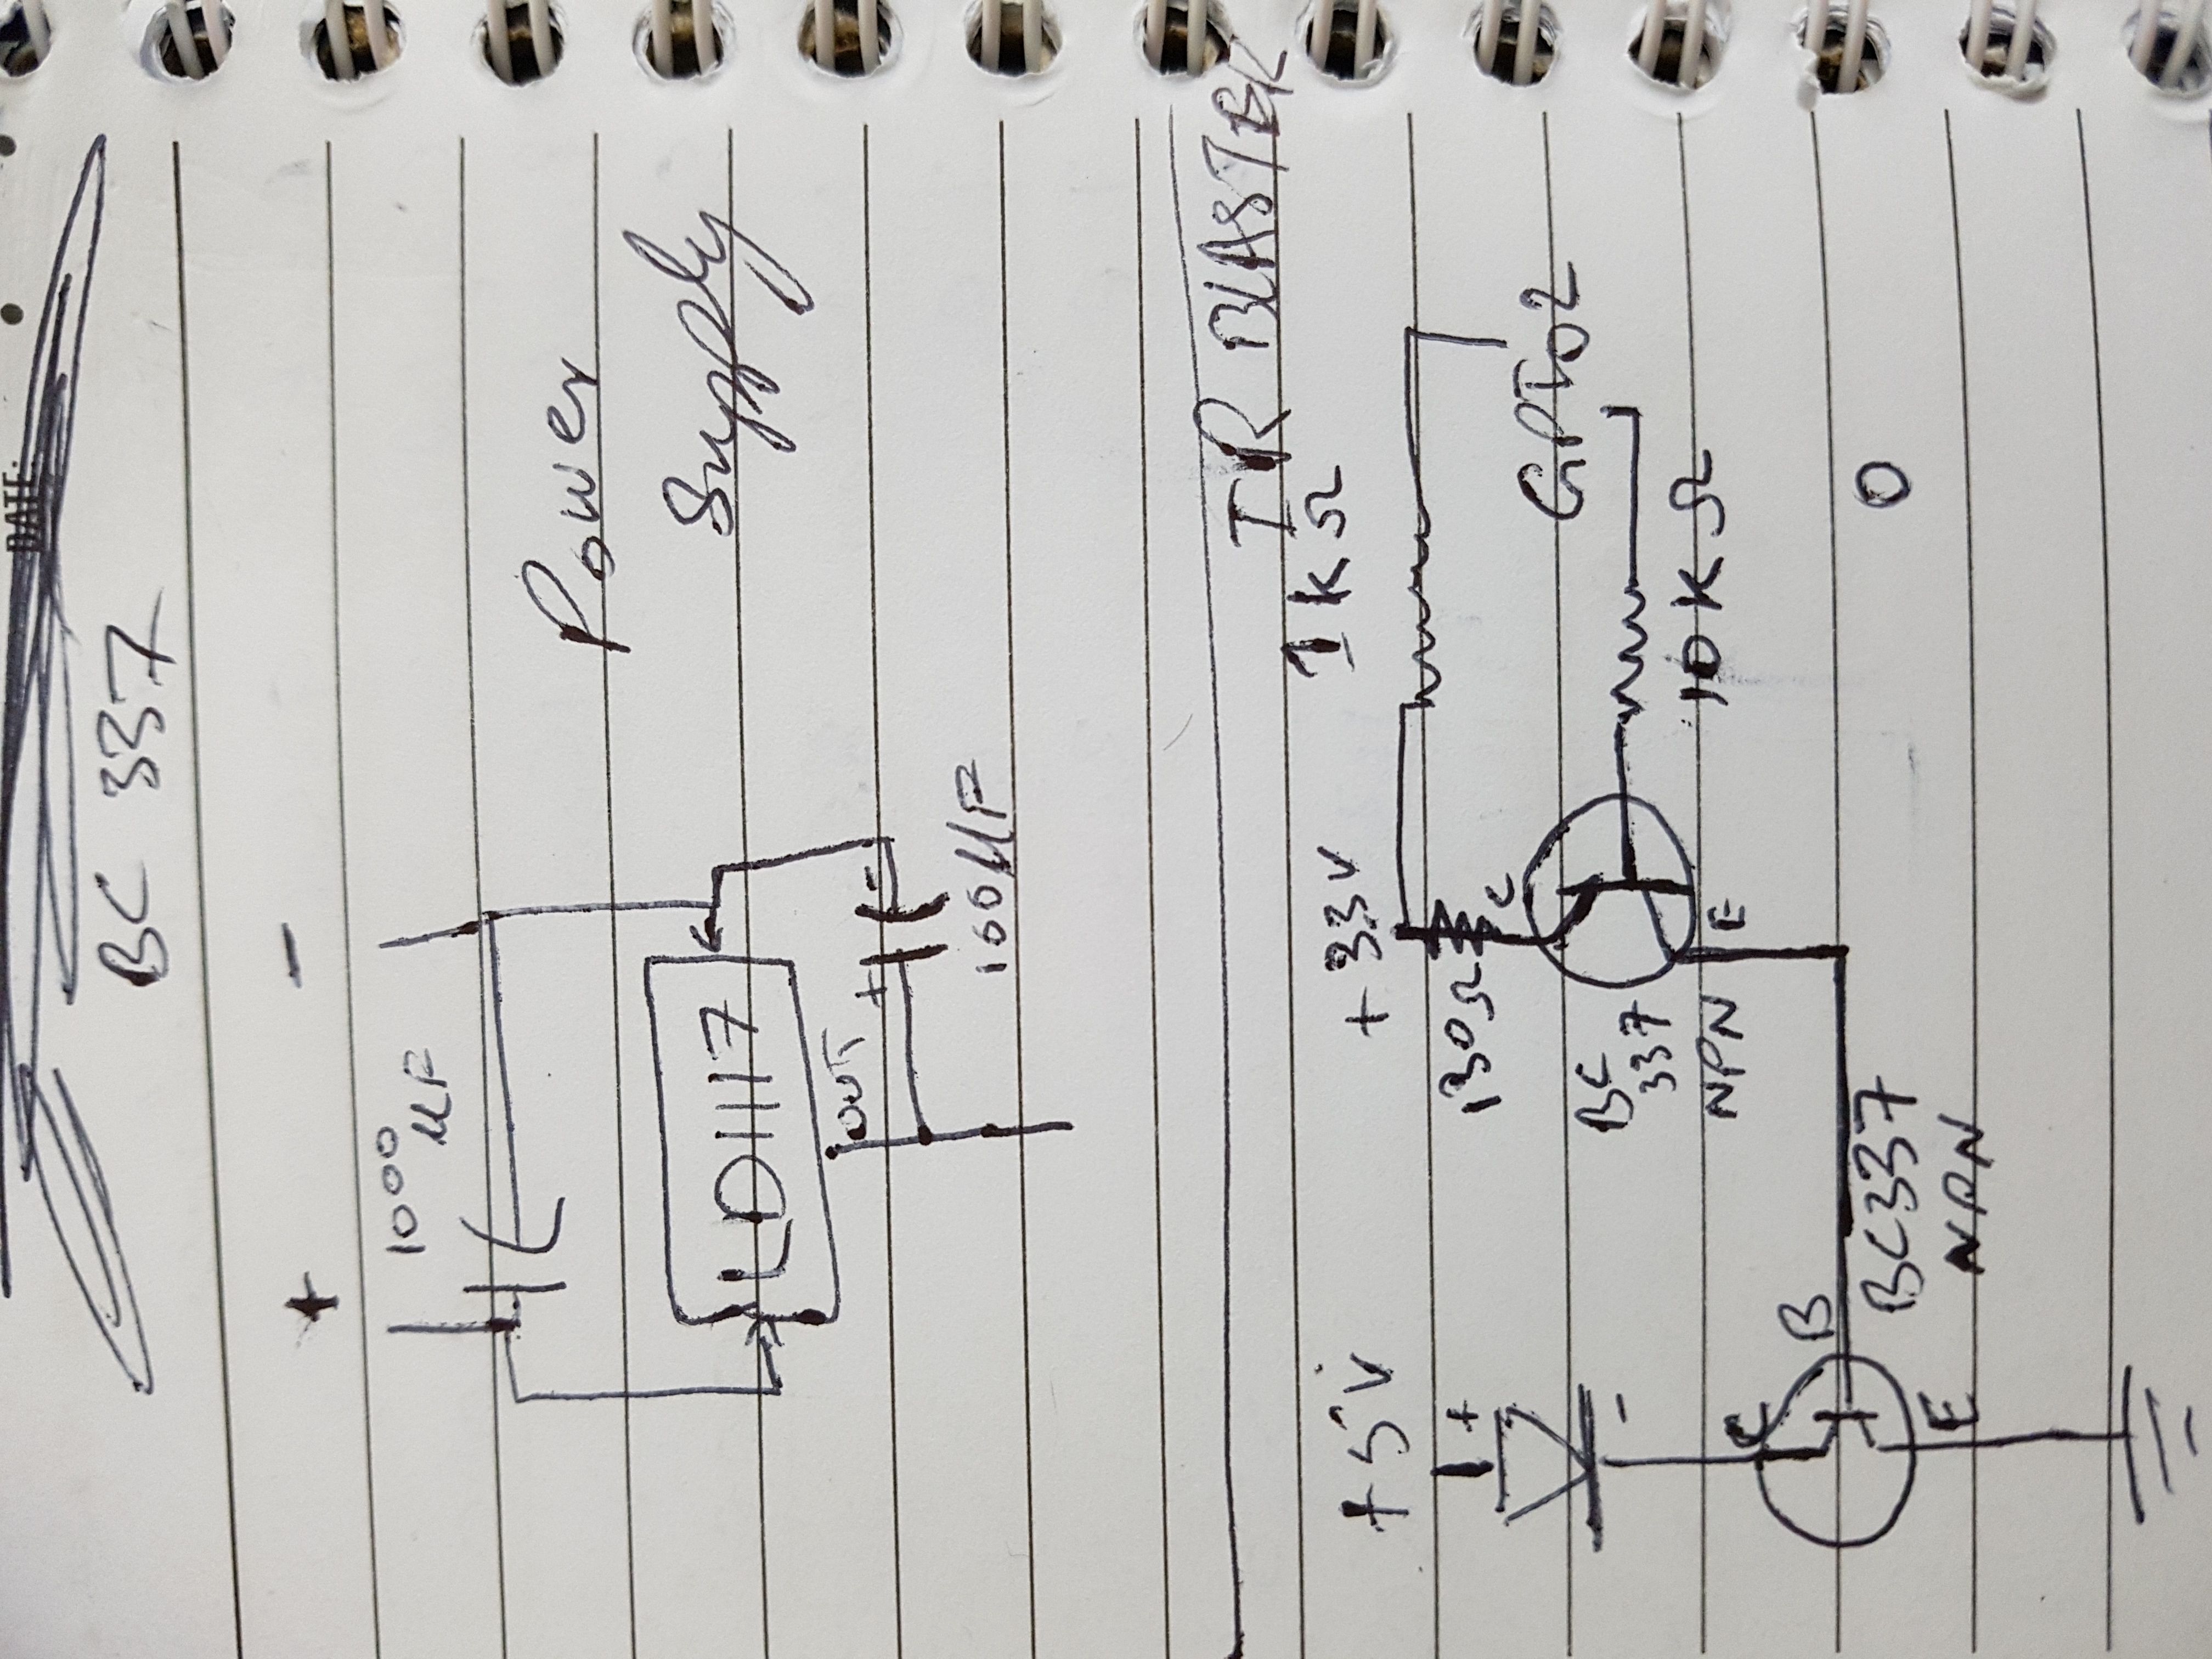 DATE:
BC 337
+ -
1000
µF
Power
Supply
LD1117
OUT
+ -
100µF
IR BLASTER
1KΩ
+5V
+3.3V
+
130Ω
C
GPIO2
BC
337
NPN
-
10KΩ
E
C
B
BC337
NPN
O
E